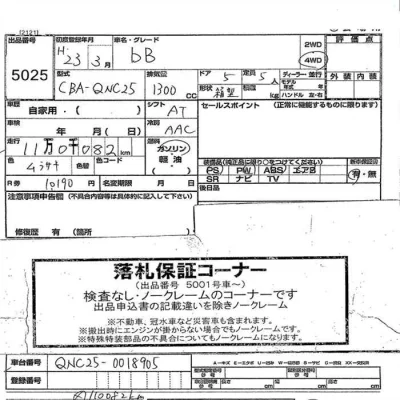 [2121]
出品番号 初度登録年月 車名・グレード 評価点
5025 H 23年 3月 bB 2WD 4WD
型式 排気量 ドア 定員 ディーラー 並行 外装 内装
CBA-QNC25 1300cc 5 5人 モデル年式
形状 箱型 積載 kg ハンドル 左右
車歴 自家用・ シフト AT セールスポイント (正常に機能するものに限る)
車検 年 月(日) 冷房 AAC
走行 11万0千082km ガソリン・軽油
色 ムラサキ 色替 色コード 装備品(純正品に限り○をつけてください) 新車保証書
PS PW ABS エアB 有・無
SR ナビ TV
R券 10190 名変期限 月 日 後日品
注意事項申告欄 (不具合内容等は具体的に記入して下さい)
修復歴 有 (箇所
落札保証コーナー
(出品番号 5001号車~)
検査なし・ノークレームのコーナーです
出品申込書の記載違いを除きノークレーム
※不動車、冠水車など災害車も含まれます。
※搬出時にエンジンが掛からない場合でもノークレームです。
※特殊特装部品の不具合についてもノークレームになります。
車台番号 QNC25-0018905
登録番号